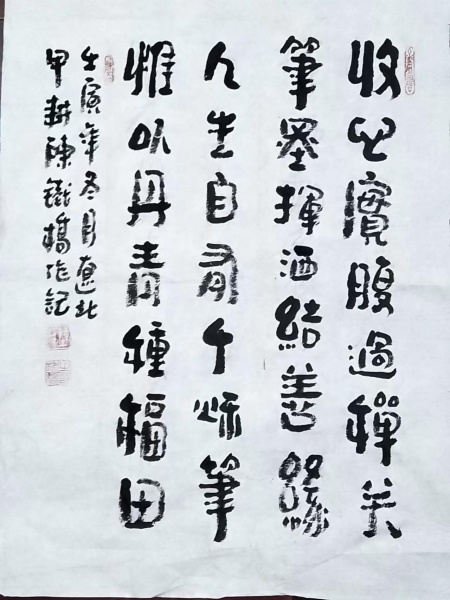 收心實腹過禪关
筆墨揮洒結善緣
人生自有千秋筆
惟以丹青種福田
壬寅年冬月遼北
甲耕陳鐵橋作記